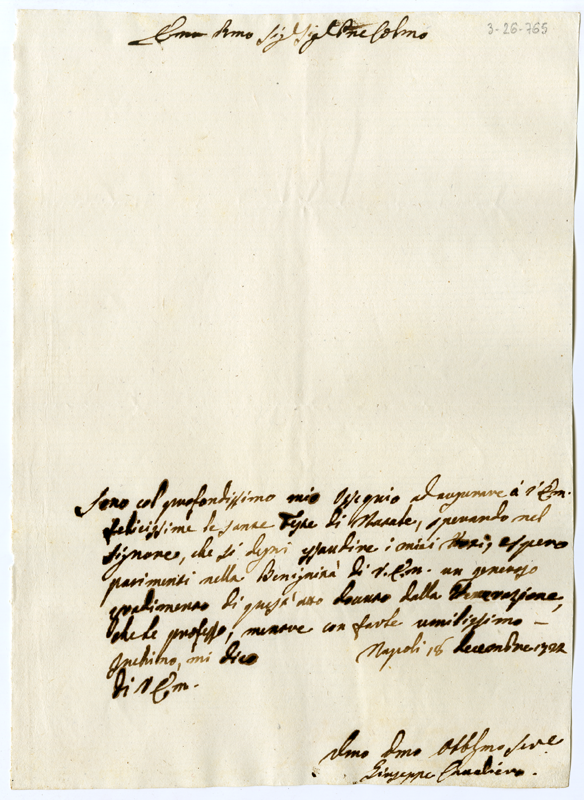 3-26-765
Emo Rmo Sig.r Sig.r Pne Colmo
Sono col profondissimo mio Ossequio ad augurare à V. Em.
felicissime le sante Feste di Natale, sperando nel
Signore, che si degni essaudire i miei Voti, e spero
parimenti nella Benignità di V. Em. un generoso
gradimento di quest'atto dovuto dalla Venerazione,
che le professo; mentre con farle umilissimo
Inchino, mi dico Napoli 18 decembre
di V. Em.
Umo Dmo Obblmo Serve
Giuseppe